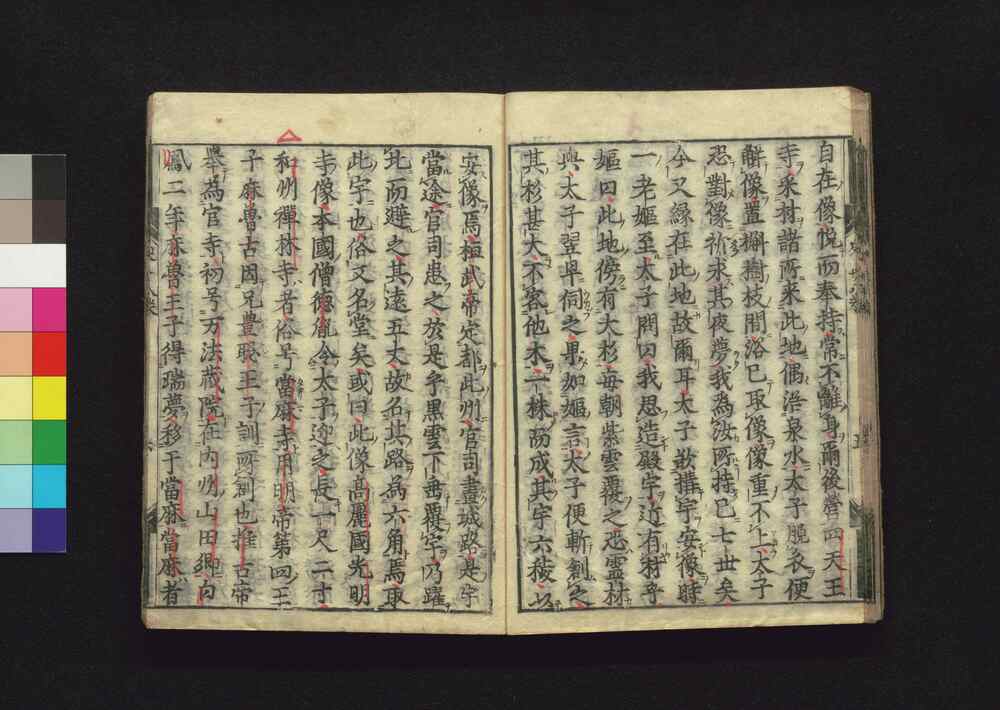 自在像悅而奉持常不離身爾後營四天王
寺求材諸所來此地偶浴泉水太子脫衣便
解像置槲樹枝間浴已取像像重不上太子
忍對像祈求其夜夢我為汝所持已七世矣
今又緣在此地故爾耳太子欲搆宇安像時
一老嫗至太子問曰我思造殿宇近有材乎
嫗曰此地傍有大杉每朝紫雲覆之恐靈材
與太子翌早伺之果如嫗言太子便斬創之
其杉甚大不容他木一株而成其宇六稜以
安像焉桓武帝定都此州官司畫城路是宇
當途官司患之於是乎黑雲下垂覆宇乃躍
北而避之其遠五丈故名其路為六角焉取
此宇也俗又名堂矣或曰此像高麗國光明
寺像本國僧德胤令太子迎之長一尺二寸
和州禪林寺者俗号當麻寺用明帝第四王
子麻曽古因兄豊聡王子訓所創也推古帝
舉為官寺初号万法蔵院在內州山田鄉白
鳳二年麻曽王子得瑞夢移于當麻當麻者